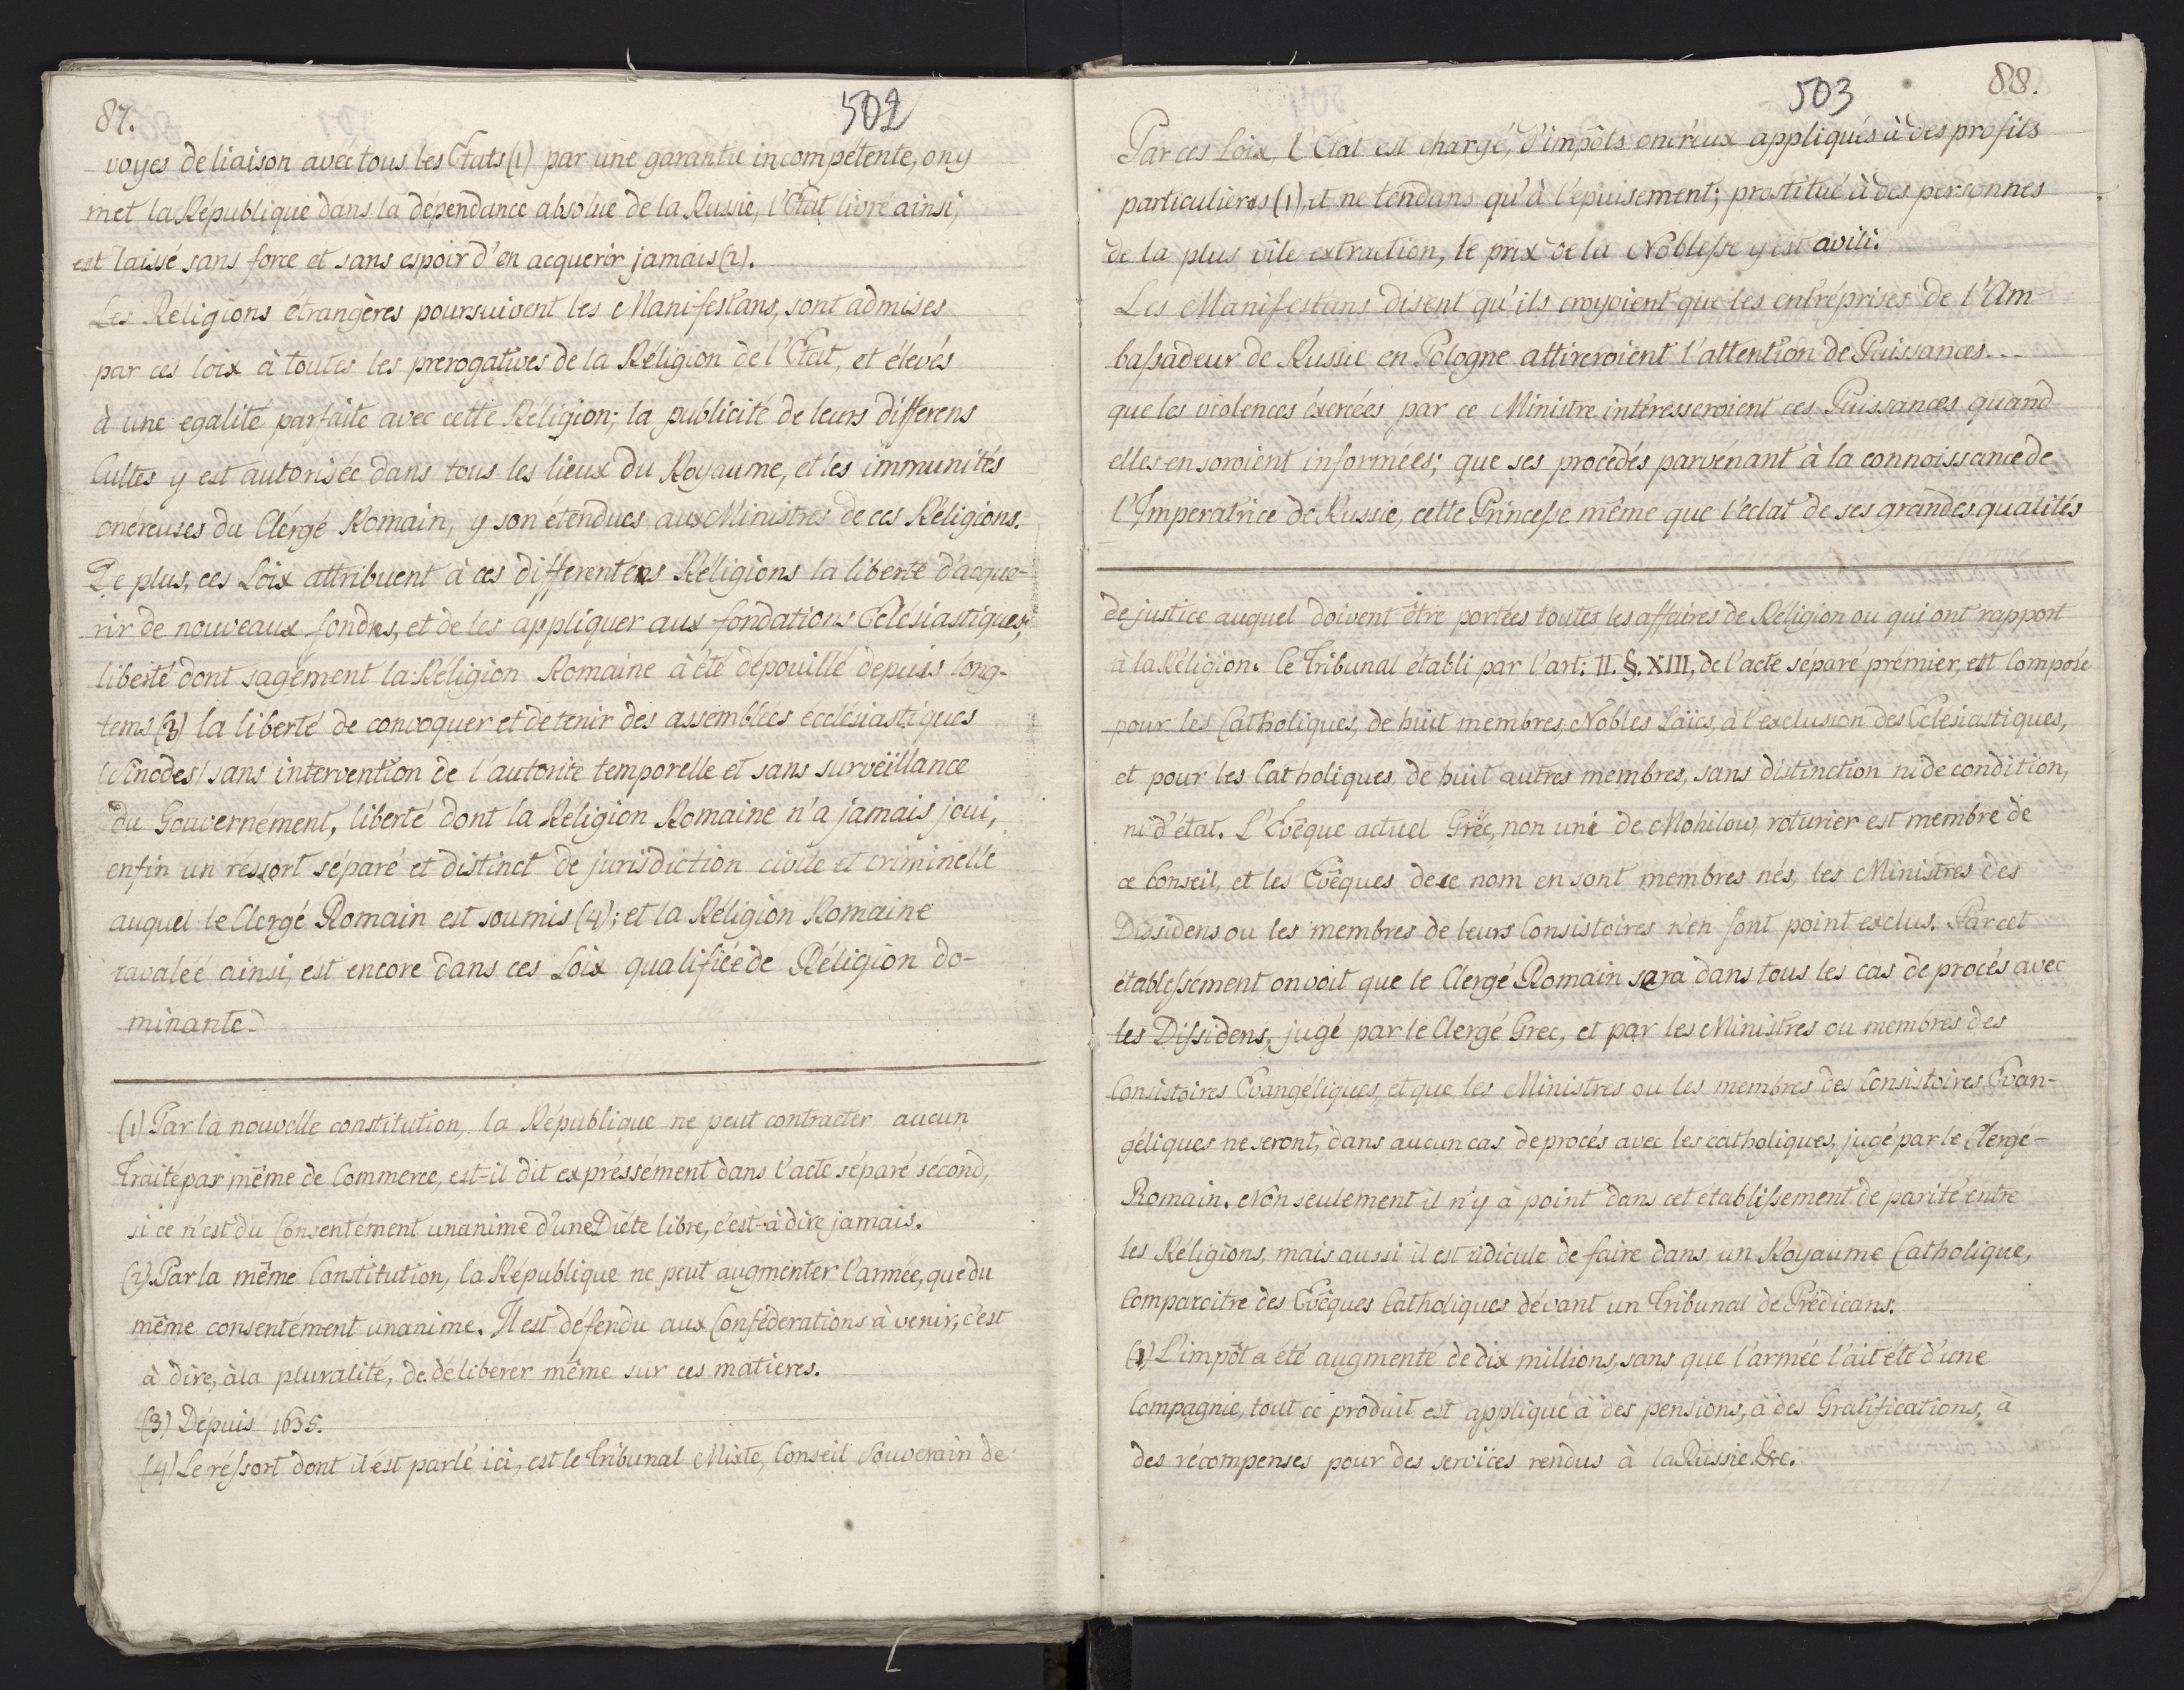 87.
502
voyes de liaison avec tous les Etats (1) par une garantie incompetente, on y
met la République dans la dépendance absolue de la Russie, l'Etat livré ainsi,
est laissé sans force et sans espoir d'en acquerir jamais (2).
Les Réligions etrangères poursuivent les Manifestans, sont admises
par ces loix à toutes les prerogatives de la Réligion de l'Etat, et élevés
à une egalité parfaite avec cette Réligion; la publicité de leurs differens
Cultes y est autorisée dans tous les lieux du Royaume, et les immunités
onéreuses du Clérgé Romain, y son étendues aux Ministres de ces Réligions.
De plus, ces Loix attribuent à ces differentens Réligions la liberté d'acque-
rir de nouveaux fonds, et de les appliquer aux fondations Eclésiastiques;
liberté dont sagément la Réligion Romaine à été dépouillé depuis long-
tems (3) la liberté de convoquer et de tenir des assemblées ecclésiastiques
(Sinodes) sans intervention de l'autorité temporelle et sans surveillance
du Gouvernément, liberté dont la Réligion Romaine n'a jamais joui,
enfin un réssort séparé et distinct de jurisdiction civile et criminelle
auquel le Clergé Romain est soumis (4); et la Réligion Romaine
ravaleé ainsi, est encore dans ces Loix qualifiée de Réligion do-
minante.
(1) Par la nouvelle constitution, la République ne peut contracter aucun
Traité pas même de Commerce, est-il dit expréssément dans l'acte séparé sécond,
si ce n'est du Consentément unanime d'une Diéte libre, c'est-à dire jamais.
(2) Par la même Constitution, la République ne peut augmenter l'armée, que du
même consentément unanime. Il est défendu aux Conféderations à venir, c'est
à dire, à la pluralité, de déliberer même sur ces matieres.
(3) Dépuis 1635.
(4) Le réssort dont il est parlé ici, est le Tribunal Mixte, Conseil Souverain de
503
88.
Par ces Loix, l'Etat est chargé, d'impôts onéreux appliqués à des profits
particulieres (1), et ne tendans qu'à l'epuisement; prostitué à des personnes
de la plus vile extraction, le prix de la Noblesse y est avili.
Les Manifestans disent qu'ils croyoient que les entréprises de l'Am-
bassadeur de Russie en Pologne attireroient l'attention de Puissances...
que les violences éxercées par ce Ministre intéresseroient ces Puissances quand
elles en soroient informées; que ses procédés parvénant à la connoissance de
l'Imperatrice de Russie, cette Princesse même que l'éclat de ses grandes qualités
de justice auquel doivent être portées toutes les affaires de Réligion ou qui ont rapport
à la Réligion. Ce Tribunal établi par l'art: II. §. XIII, de l'acte séparé prémier, est Composé
pour les Catholiques, de huit membres, Nobles Laïcs, à l'exclusion des Eclésiastiques,
et pour les Catholiques de huit autres membres, sans distinction ni de condition,
ni d'état. L'Evêque actuel Gréc, non uni de Mohilow, roturier est membre de
ce Conseil, et les Evêques de ce nom en sont membres nés, les Ministres des
Dissidens ou les membres de leurs Consistoires n'en font point exclus. Par cet
établessément on voit que le Clergé Romain sara dans tous les cas de procés avec
les Dissidens, jugé par le Clergé Grec, et par les Ministres ou membres des
Consistoires Evangéliques, et que les Ministres ou les membres des Consistoires Evan-
géliques ne seront, dans aucun cas de procés avec les catholiques, jugé par le Clergé-
Romain. Non seulement il n'y à point dans cet établissement de parité entre
les Réligions, mais aussi il est ridicule de faire dans un Royaume Catholique,
Comparoitre des Evêques Catholiques dévant un Tribunal de Prédicans.
(1) L'impôt a été augmenté de dix millions, sans que l'armée l'ait été d'une
Compagnie, tout ce produit est appliqué à des pensions, à des Gratifications, à
des récompenses pour des services rendus à la Russie. &c.